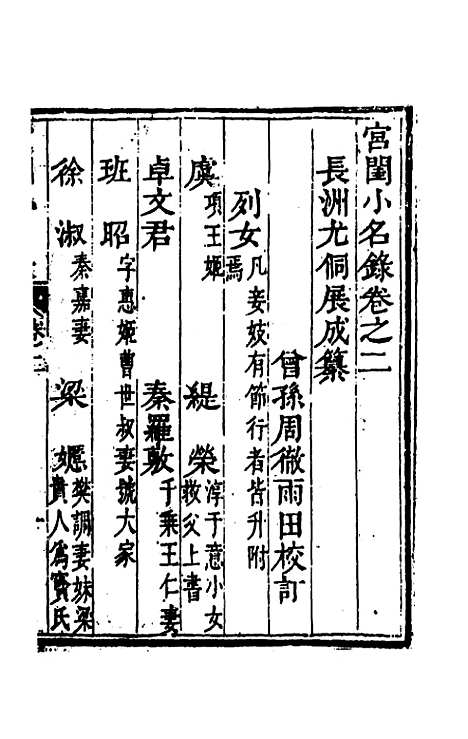 宮閨小名錄卷之二
長洲尤侗展成纂
曾孫周徹雨田校訂
列女凡妾妓有節行者皆升附焉
虞項王姬 緹縈淳于意小女救父上書
卓文君 秦羅敷千乘王仁妻
班昭字惠姬曹世叔妻號大家
徐淑秦嘉妻 梁嫕樊調妻妹梁貴人為竇氏